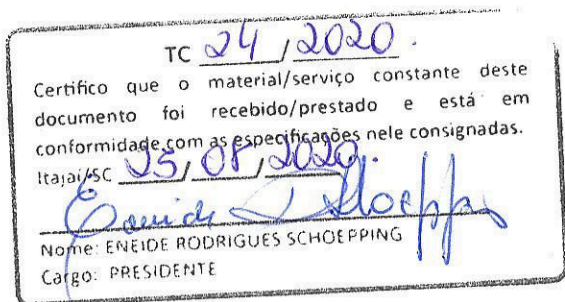 TC 24 / 2020.
Certifico que o material/serviço constante deste
documento foi recebido/prestado e está em
conformidade com as especificações nele consignadas.
Itajaí/SC 25 / 08 / 2020.
Eneide Schoepping
Nome: ENEIDE RODRIGUES SCHOEPPING
Cargo: PRESIDENTE